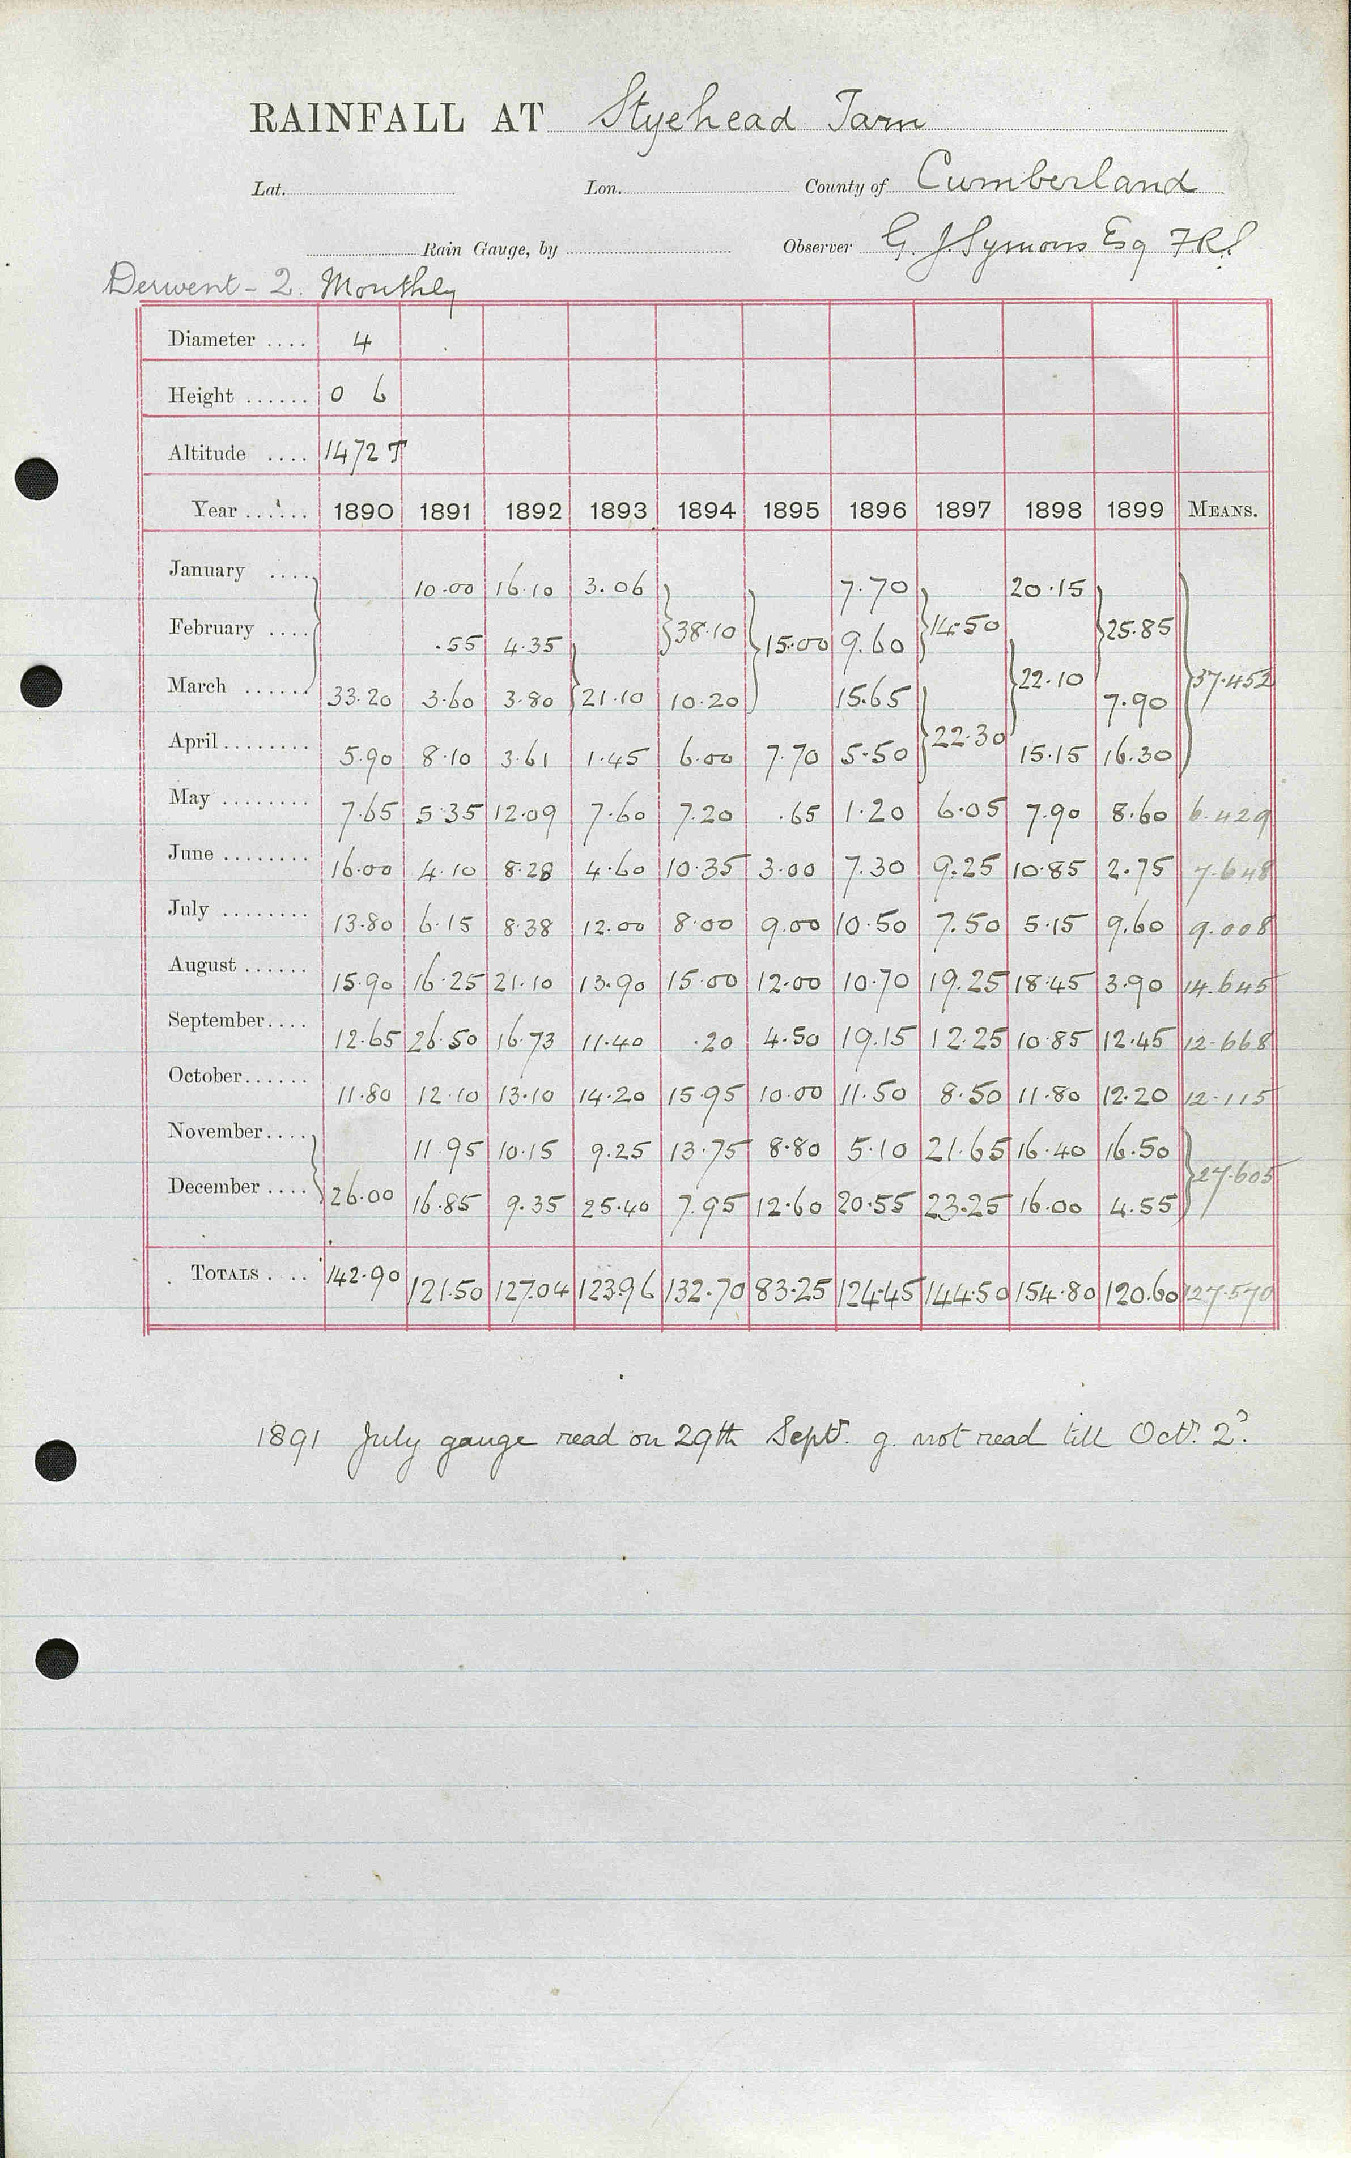 RAINFALL AT Styehead Tarn
Lat. Lon. County of Cumberland
Rain Gauge, by Observer G. J. Symons Esq FRS
Derwent - 2. Monthly
Diameter .... 4
Height ...... 0 6
Altitude .... 1472 T
Year ...... 1890 1891 1892 1893 1894 1895 1896 1897 1898 1899 MEANS.
January .... 10.00 16.10 3.06 7.70 20.15
February .... .55 4.35 38.10 15.00 9.60 14.50 25.85
March ...... 33.20 3.60 3.80 21.10 10.20 15.65 22.10 7.90 37.452
April ........ 5.90 8.10 3.61 1.45 6.00 7.70 5.50 22.30 15.15 16.30
May ........ 7.65 5.35 12.09 7.60 7.20 .65 1.20 6.05 7.90 8.60 6.429
June ........ 16.00 4.10 8.28 4.60 10.35 3.00 7.30 9.25 10.85 2.75 7.648
July ........ 13.80 6.15 8.38 12.00 8.00 9.00 10.50 7.50 5.15 9.60 9.008
August ...... 15.90 16.25 21.10 13.90 15.00 12.00 10.70 19.25 18.45 3.90 14.645
September .... 12.65 26.50 16.73 11.40 .20 4.50 19.15 12.25 10.85 12.45 12.668
October ...... 11.80 12.10 13.10 14.20 15.95 10.00 11.50 8.50 11.80 12.20 12.115
November .... 11.95 10.15 9.25 13.75 8.80 5.10 21.65 16.40 16.50
December .... 26.00 16.85 9.35 25.40 7.95 12.60 20.55 23.25 16.00 4.55 27.605
TOTALS .... 142.90 121.50 127.04 123.96 132.70 83.25 124.45 144.50 154.80 120.60 127.570
1891 July gauge read on 29th Septr. g. not read till Octr. 2?